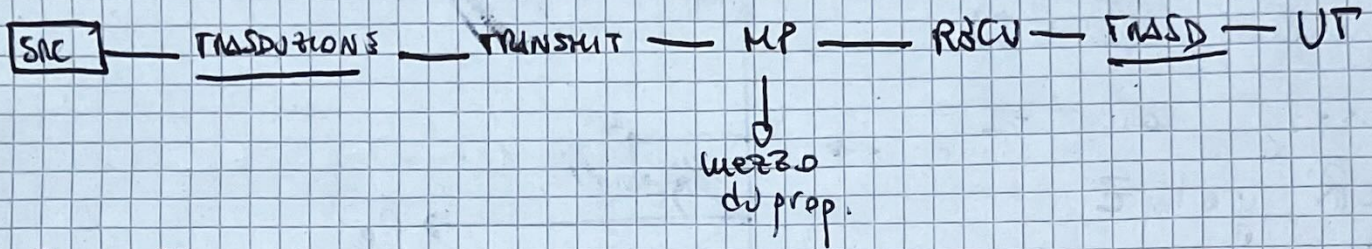 SRC TRASDUZIONE TRANSMIT MP RECV TRASD UT
mezzo
di prop.